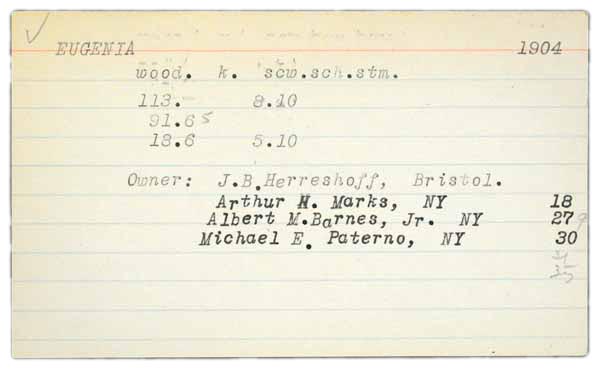 EUGENIA 1904
wood. k. scw.sch.stm.
113. 8.10
91.65
18.6 5.10
Owner: J.B.Herreshoff, Bristol.
Arthur H. Marks, NY 18
Albert M.Barnes, Jr. NY 27
Michael E. Paterno, NY 30